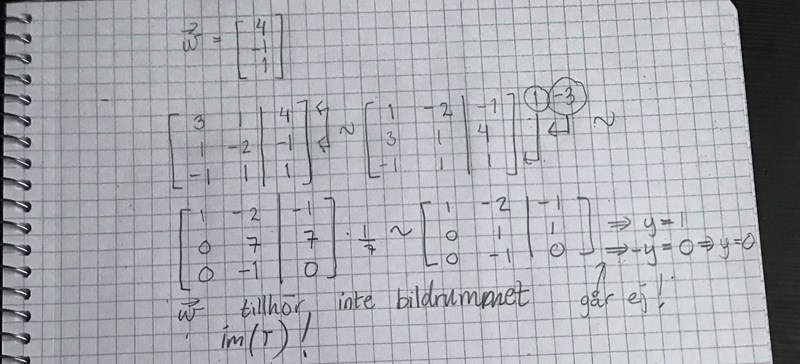 w⃗ = [4; -1; 1]
[3 1 | 4; 1 -2 | -1; -1 1 | 1] ~ [1 -2 | -1; 3 1 | 4; -1 1 | 1] ① (-3) ~
[1 -2 | -1; 0 7 | 7; 0 -1 | 0] · 1/7 ~ [1 -2 | -1; 0 1 | 1; 0 -1 | 0] ⇒ y = 1
⇒ -y = 0 ⇒ y = 0
w⃗ tillhör inte bildrummet går ej!
im(T)!